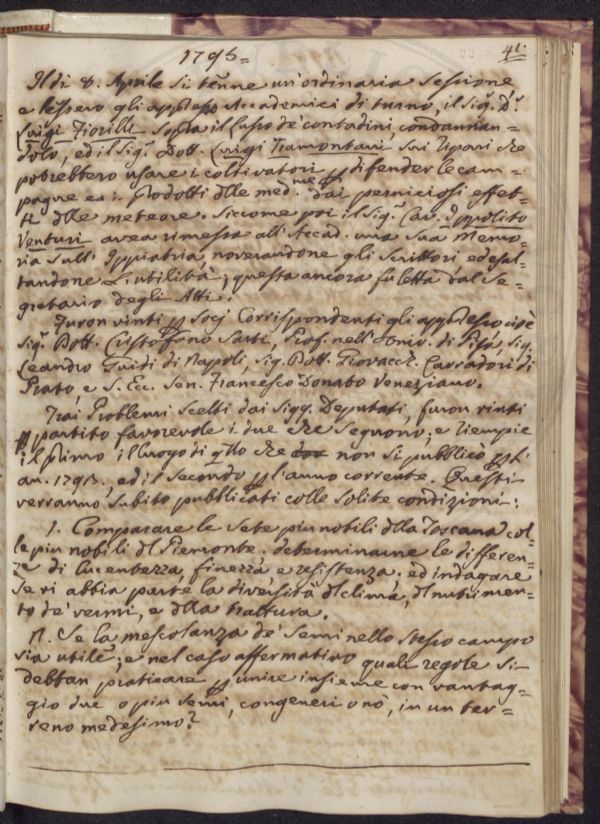 1795=
41.
Il dì 8. Aprile si tenne un'ordinaria sessione
e lessero gli appresso Accademici di turno, il Sig. D.r
Luigi Fiorilli sopra il lusso de' contadini, condannan=
dolo, ed il Sig. Dott. Luigi Tramontani sui ripari che
potrebbero usare i coltivatori p difender le cam=
pagne ed i Prodotti dlle med.me dai perniciosi effet=
ti dlle meteore. Siccome poi il Sig. Cav. Ippolito
Venturi avea rimessa all'Accad. una sua Memo=
ria sull'Ippiatria, noverandone gli scrittori ed esal=
tandone l'utilità; questa ancora fu letta dal Se=
gretario degli Atti.
Furon vinti p Socj Corrispondenti gli appresso cioè
Sig. Dott. Cristoffano Sarti, Prof. nell'Univ. di Pisa, Sig.
Leandro Guidi di Napoli, Sig. Dott. Giovacch. Carradori di
Prato, e S. Ecc. Sen. Francesco Donato Veneziano.
Trai Problemi scelti dai Sigg. Deputati, furon vinti
p partito favorevole i due che seguono, e riempie
il primo il luogo di qllo che non si pubblicò p l'
an. 1793, ed il secondo p l'anno corrente. Questi
verranno subito pubblicati colle solite condizioni:
I. Comparare le Sete piu nobili dlla Toscana col=
le piu nobili dl Piemonte: determinarne le differen=
ze di lucentezza, finezza e resistenza: ed indagare
se vi abbia parte la diversità dl clima, dl nutrimen=
to de' vermi, e dlla trattura.
II. Se la mescolanza de' semi nello stesso campo
sia utile; e nel caso affermativo quali regole si
debban praticare p unire insieme con vantag=
gio due o piu semi, congeneri o nò, in un ter=
reno medesimo?